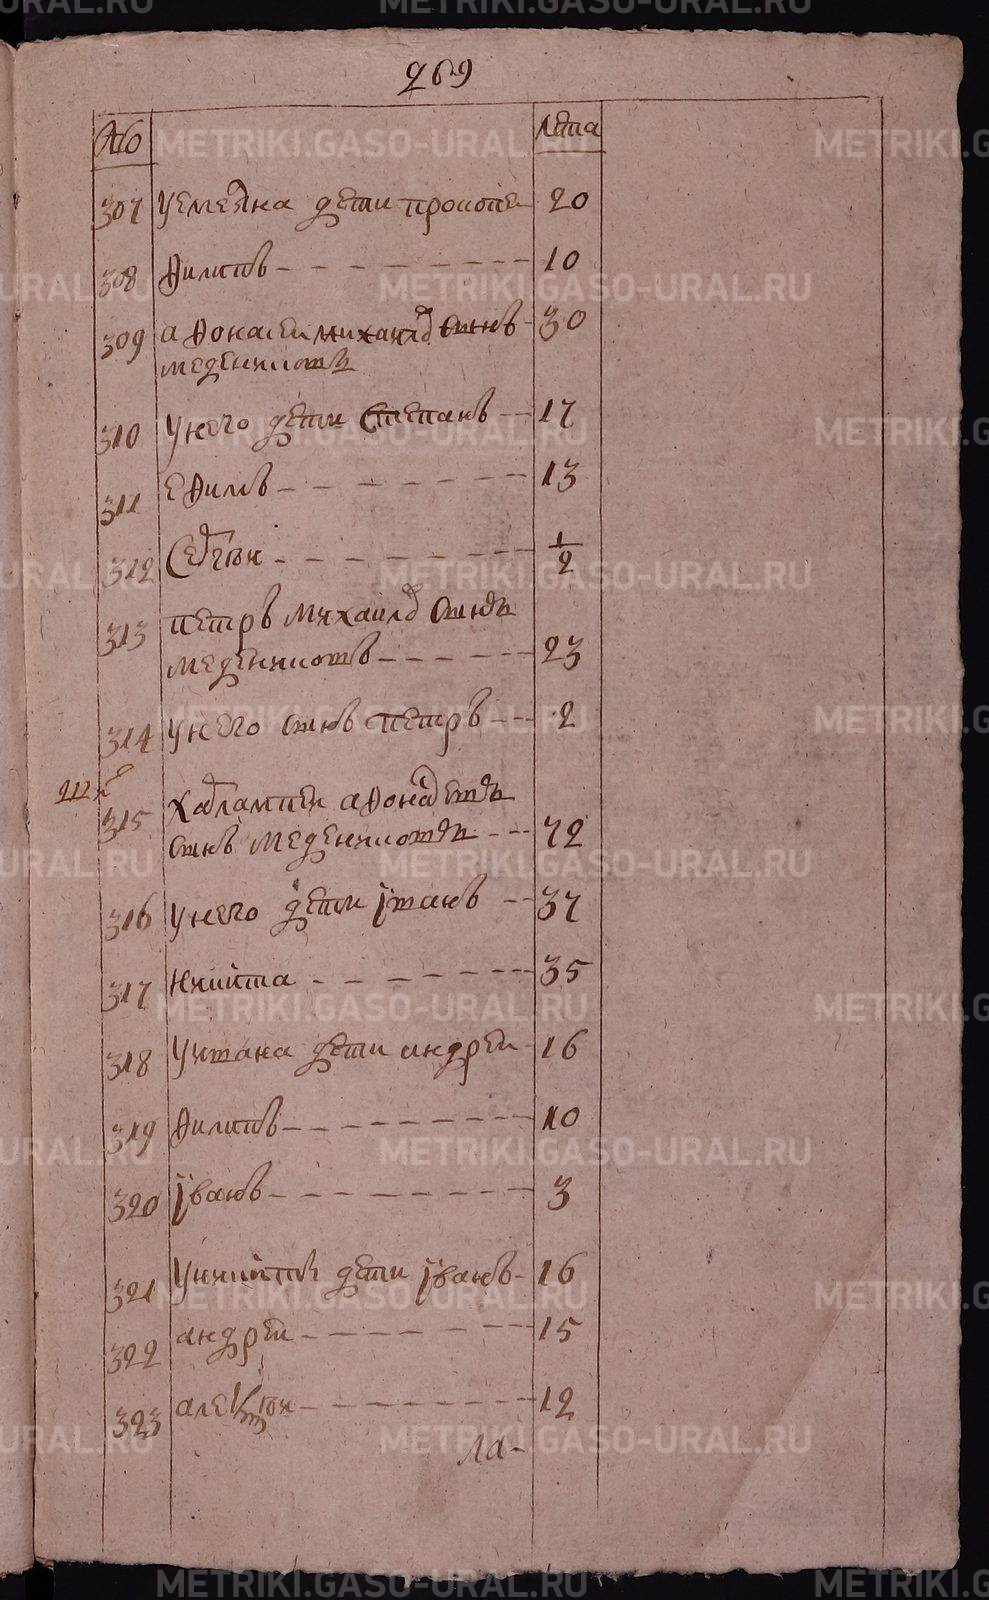 METRIKI.GASO-URAL.RU
269
№ лѣта
307 Уемеляна дети прокопеи 20
308 Филипъ 10
309 афонасеи михаилов сынъ 30
меденниковъ
310 Унего дети Степанъ 17
311 ефимъ 13
312 Сергеи 1/2
313 петръ михаилов сынъ
меденниковъ 23
314 Унего сынъ петръ 2
315 Харлампеи афонасьевъ
сынъ меденниковъ 72
316 Унего дети Iванъ 37
317 никита 35
318 Уивана дети андреи 16
319 Филипъ 10
320 Iванъ 3
321 Уникиты дети Iванъ 16
322 андреи 15
323 алексеи 12
ла